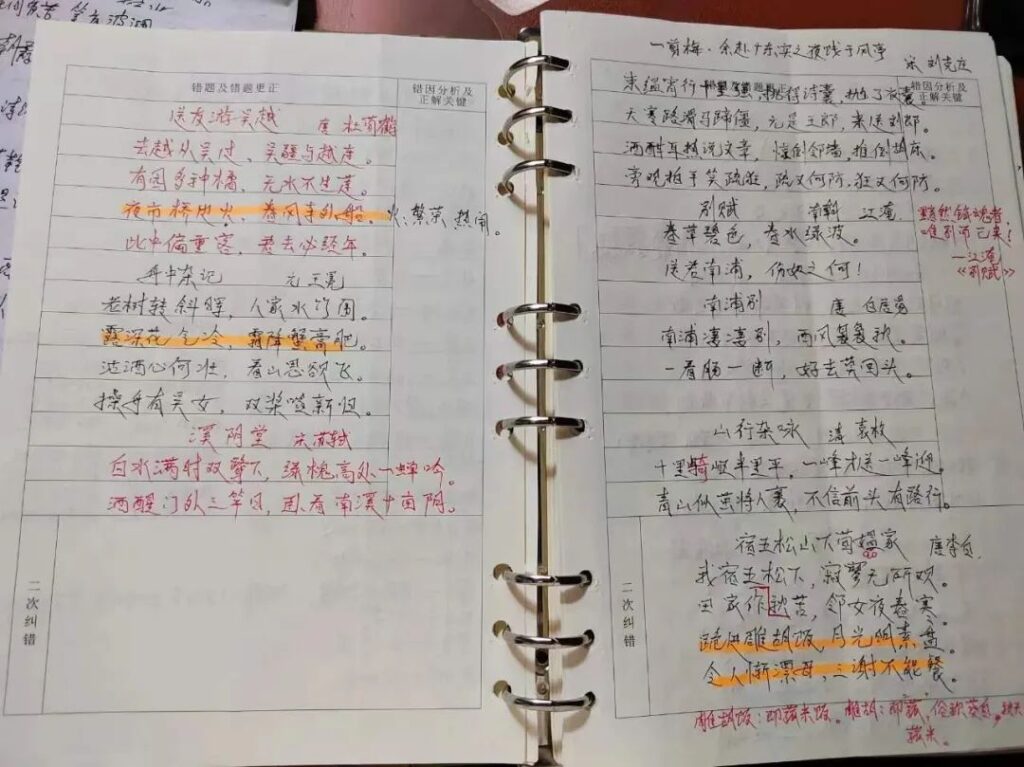 错题及错题更正
错因分析及
正解关键
送友游吴越 唐 杜荀鹤
去越从吴过，吴疆与越连。
有园多种橘，无水不生莲。
夜市桥边火，春风寺外船。
火：繁荣、热闹。
此中偏重客，君去必经年。
舟中杂记 元 王冕
老树转斜晖，人家水竹围。
露深花气冷，霜降蟹膏肥。
沽酒心何壮，看山思欲飞。
操舟有吴女，双桨唱新归。
溪阴堂 宋 苏轼
白水满时双鹭下，绿槐高处一蝉吟。
酒醒门外三竿日，卧看南溪十亩阴。
二次纠错
一剪梅·余赴广东实之夜饯于风亭
宋 刘克庄
错因分析及
正解关键
束缊宵行十里强，挑得诗囊，抛了衣囊
天寒路滑马蹄僵，元是王郎，来送刘郎。
酒酣耳热说文章，惊倒邻墙，推倒胡床。
旁观拍手笑疏狂，疏又何防，狂又何防。
别赋 南朝 江淹
春草碧色，春水绿波。
送君南浦，伤如之何！
黯然销魂者
唯别而已矣！
—江淹
《别赋》
南浦别 唐 白居易
南浦凄凄别，西风袅袅秋。
一看肠一断，好去莫回头。
山行杂咏 清 袁枚
十里崎岖半里平，一峰才送一峰迎。
青山似茧将人裹，不信前头有路行。
宿五松山下荀媪家 唐 李白
我宿五松下，寂寥无所欢。
田家作秋苦，邻女夜舂寒。
跪进雕胡饭，月光明素盘。
令人惭漂母，三谢不能餐。
雕胡饭：即菰米饭。雕胡：即菰，俗称茭白，
菰米。
二次纠错